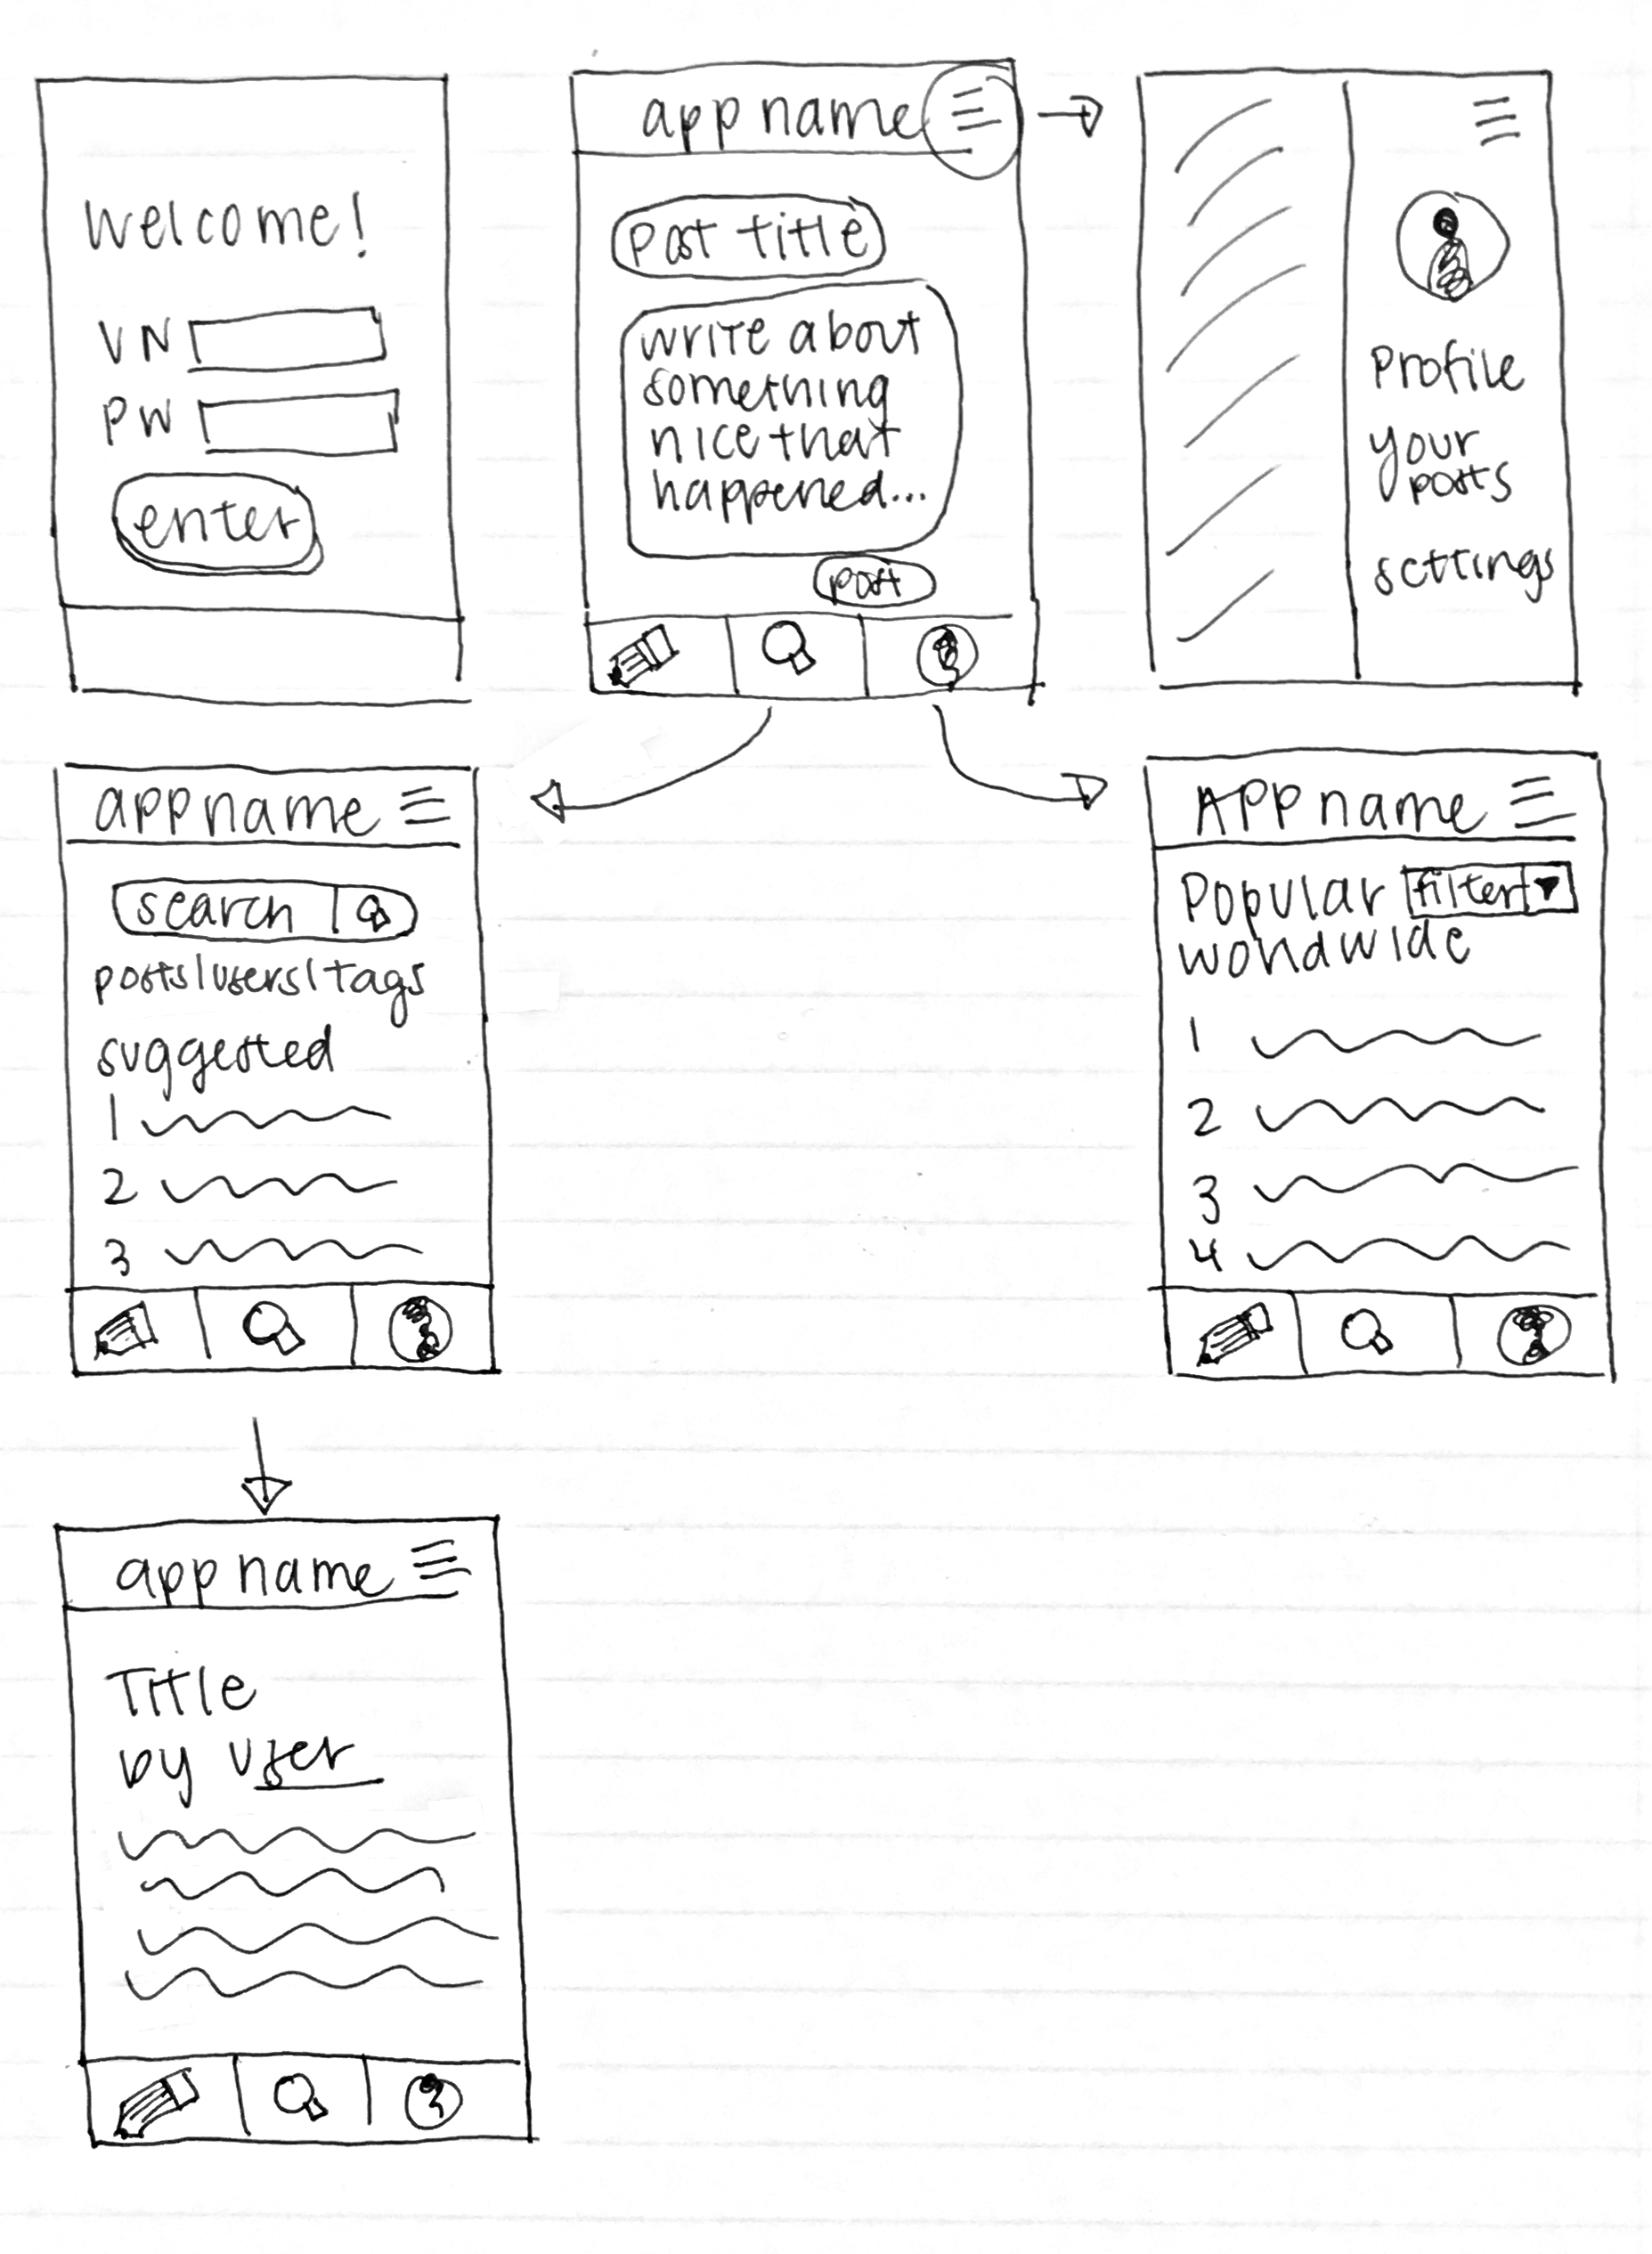 Welcome!
UN
PW
enter
app name
post title
write about
something
nice that
happened...
post
Profile
your
posts
settings
app name
search
posts|users|tags
suggested
1
2
3
APP name
Popular filter
worldwide
1
2
3
4
app name
Title
by user